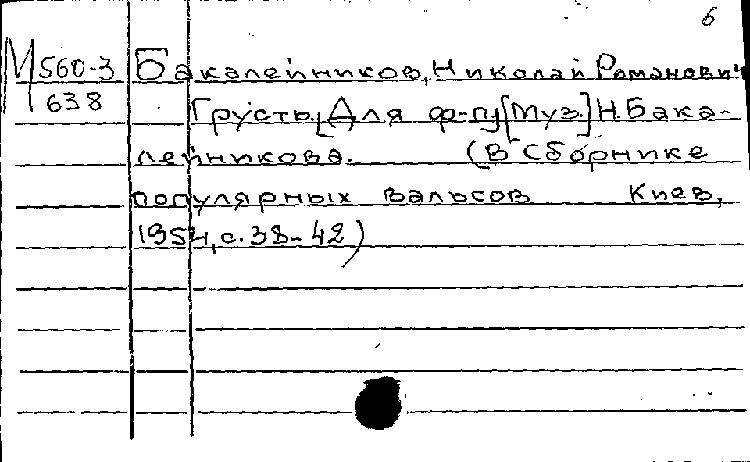 6
М 560-3 Бакалейников, Николай Романович
638 Грусть. [Для ф-п] [Муз.] Н. Бака-
лейникова. (В Сборнике
популярных вальсов Киев,
1954, с. 38-42)